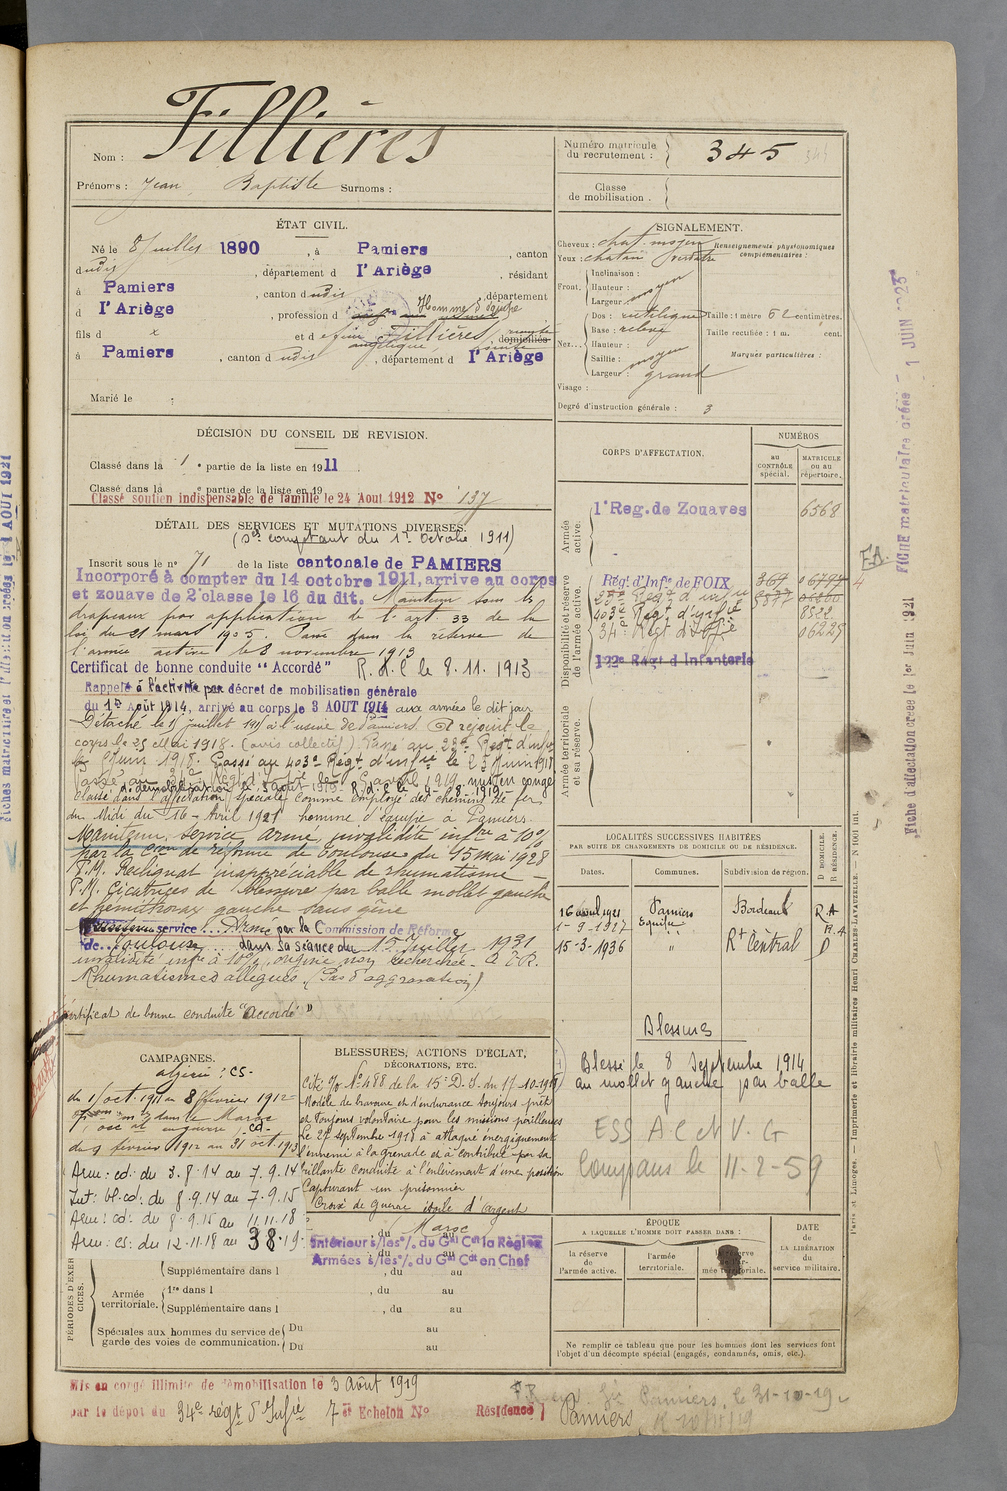 Fillières
Nom :
Prénoms : Jean Baptiste Surnoms :
Numéro matricule du recrutement : 345
Classe de mobilisation.
ÉTAT CIVIL.
Né le 8 Juillet 1890, à Pamiers, canton
dudit, département d l'Ariège, résidant
à Pamiers, canton dudit, département
d l'Ariège, profession d Homme d'équipe
fils d x et d Fillières, domiciliés
angélique
à Pamiers, canton dudit, département d l'Ariège
Marié le
SIGNALEMENT.
Cheveux : chat. moyen
Renseignements physionomiques complémentaires :
Yeux : chatain verdatre
Front. Inclinaison :
Hauteur : moyen
Largeur
Nez. Dos : rectiligne
Taille : 1 mètre 62 centimètres.
Base : relevé
Taille rectifiée : 1 m. cent.
Hauteur :
Marques particulières :
Saillie : moyen
Largeur : grand
Visage :
Degré d'instruction générale : 3
DÉCISION DU CONSEIL DE REVISION.
Classé dans la 1e partie de la liste en 1911
Classé dans la e partie de la liste en 19
Classé soutien indispensable de famille le 24 Aout 1912 No 137
DÉTAIL DES SERVICES ET MUTATIONS DIVERSES.
(Sce comptant du 1er Octobre 1911)
Inscrit sous le no 71 de la liste cantonale de PAMIERS
Incorporé à compter du 14 octobre 1911, arrive au corps
et zouave de 2e classe le 16 du dit. Maintenu sous les
drapeaux par application de l'art 33 de la
loi du 21 mars 1905. Passé dans la réserve de
l'armée active le 8 novembre 1913
Certificat de bonne conduite "Accordé" R.d.C le 8.11.1913
Rappelé à l'activité par décret de mobilisation générale
du 1er Août 1914, arrivé au corps le 3 AOUT 1914 aux armées le dit jour
Détaché le juillet à l'usine de Pamiers. A rejoint le
corps le 25 Mai 1918. (avis collectif). Passé au 22e Regt d'infie
le Juin 1918. Passé au 403e Regt d'infie le 25 Juin 1918
Passé au Regt d'infie 1919 mis en congé
Classé dans l'affectation spéciale comme employé des chemins de fer
du Midi du 16 Avril 1921 homme d'équipe à Pamiers.
Maintenu service armé, invalidité infre à 10%
par la Cion de réforme de Toulouse du 15 mai 1928
P.M. Reliquat inappréciable de rhumatisme
P.M. Cicatrices de blessure par balle mollet gauche
et hémithorax gauche sans gêne
service Armé par la Commission de Réforme
de Toulouse dans sa séance du 15 Juillet 1931
invalidité infre à 10%, origine non recherchée
Rhumatismes allégués. (Pas d'aggravation)
Certificat de bonne conduite "Accordé"
CORPS D'AFFECTATION.
NUMÉROS
au CONTRÔLE spécial.
MATRICULE ou au répertoire.
Armée active.
1r Reg. de Zouaves 6568
Disponibilité et réserve de l'armée active.
Régt d'Infie de FOIX 367
403e Regt d'infie 8522
34e Regt d'Infie 06225
122e Régt d'Infanterie
Armée territoriale et sa réserve.
LOCALITÉS SUCCESSIVES HABITÉES
PAR SUITE DE CHANGEMENTS DE DOMICILE OU DE RÉSIDENCE.
Dates. Communes. Subdivision de région. D DOMICILE. R RÉSIDENCE.
16 avril 1921 Pamiers Bordeaux R.A
1-9-1927 Equipe R.A
15-3-1936 " Rt Central D
Blessures
Blessé le 8 Septembre 1914
au mollet gauche par balle
ESS A.C et V.G
Compans le 11-2-59
CAMPAGNES.
algérie : CS-
du 1 oct. 1911 au 8 février 1912
du 9 février 1912 au 31 oct. 1913
Arm : cd : du 3.8.14 au 7.9.14
Int : bl. cd : du 8.9.14 au 7.9.15
Arm : cd : du 8.9.15 au 11.11.18
Arm : cs : du 12.11.18 au 3.8.19
BLESSURES, ACTIONS D'ÉCLAT,
DÉCORATIONS, ETC.
Cité No 488 de la 15e D.I. du 17-10-1918
Modèle de bravoure et d'endurance toujours prêt
et Toujours volontaire pour les missions périlleuses
Le 27 septembre 1918 a attaqué énergiquement
l'ennemi à la grenade et a contribué par sa
brillante conduite à l'enlèvement d'une position
Capturant un prisonnier
Croix de Guerre étoile d'argent
Maroc
Intérieur s/les o/. du Gal Cdt la Région
Armées s/les o/. du Gal Cdt en Chef
PÉRIODES D'EXERCICES.
Supplémentaire dans l , du au
Armée territoriale. 1re dans l , du au
Supplémentaire dans l , du au
Spéciales aux hommes du service de garde des voies de communication. Du au
Du au
ÉPOQUE
A LAQUELLE L'HOMME DOIT PASSER DANS :
la réserve de l'armée active.
l'armée territoriale.
DATE DE LA LIBÉRATION du service militaire.
Ne remplir ce tableau que pour les hommes dont les services font
l'objet d'un décompte spécial (engagés, condamnés, omis, etc.).
Mis en congé illimité de démobilisation le 3 Août 1919
par le dépôt du 34e régt d'Infie 7e Echelon No Résidence Pamiers
Paris et Limoges. — Imprimerie et librairie militaires Henri CHARLES-LAVAUZELLE.
FICHE matriculaire créée - 1 JUIN
Fiche d'affectation créée le 1er Juin 1921